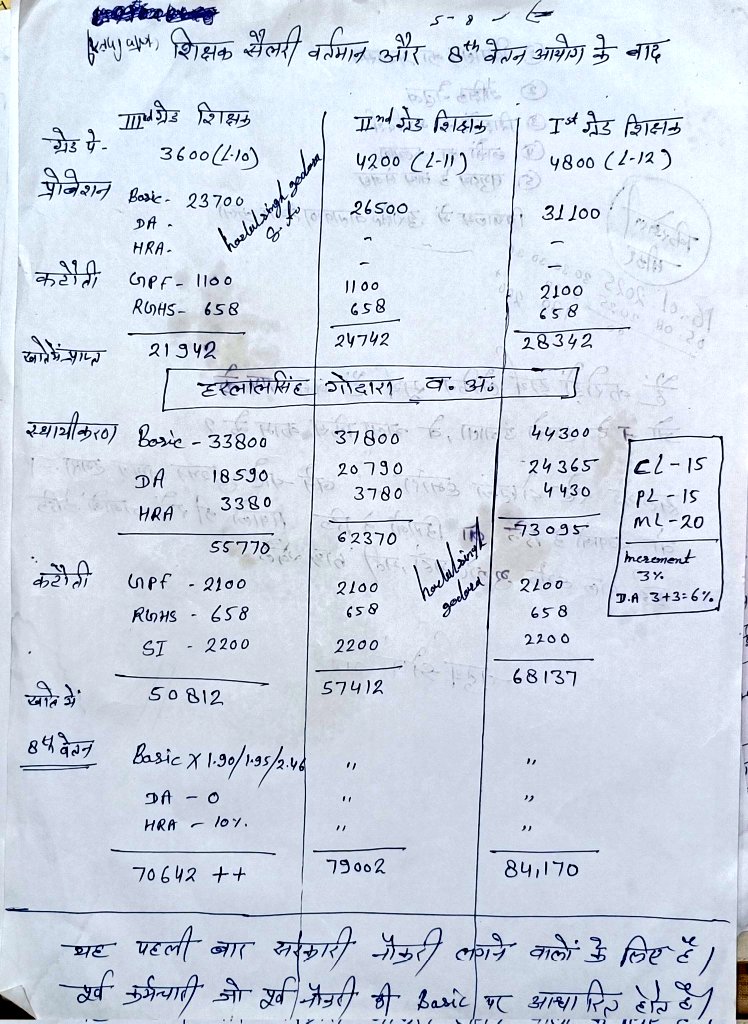 5-8-
शिक्षक सैलरी वर्तमान और 8th वेतन आयोग के बाद
IIIrd ग्रेड शिक्षक IInd ग्रेड शिक्षक Ist ग्रेड शिक्षक
ग्रेड पे- 3600 (L-10) 4200 (L-11) 4800 (L-12)
प्रोबेशन Basic - 23700 26500 31100
DA - - -
HRA - - -
harlalsingh godara
कटौती GPF - 1100 1100 2100
RGHS - 658 658 658
खाते में प्राप्त 21942 24742 28342
हरलालसिंह गोदारा व. अ.
स्थायीकरण Basic - 33800 37800 44300
DA 18590 20790 24365
HRA 3380 3780 4430
55770 62370 73095
CL - 15
PL - 15
ML - 20
Increment
3%
D.A 3+3=6%
harlalsingh
godara
कटौती GPF - 2100 2100 2100
RGHS - 658 658 658
SI - 2200 2200 2200
खाते में 50812 57412 68137
8th वेतन Basic X 1.90/1.95/2.46 " "
DA - 0 " "
HRA - 10%. " "
70642 ++ 79002 84,170
यह पहली बार सरकारी नौकरी लगने वालों के लिए है।
पूर्व कर्मचारी जो पूर्व नौकरी की Basic पर आधारित होते है।